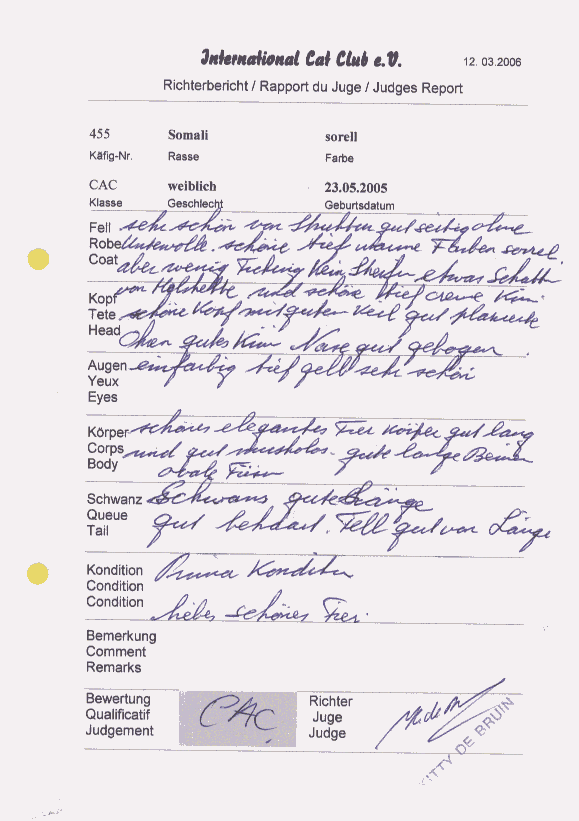 International Cat Club e.V.
12. 03.2006
Richterbericht / Rapport du Juge / Judges Report
455 Somali sorell
Käfig-Nr. Rasse Farbe
CAC weiblich 23.05.2005
Klasse Geschlecht Geburtsdatum
Fell sehr schön von gut seitig ohne
Robe Unterwolle. schöne tief warme Farben sorrel.
Coat aber wenig Ticking kein etwas
von und schöne tief creme Kinn
Kopf
Tete schöne Kopf mit guten Keil gut plazierte
Head Ohren gutes Kinn Nase gut gebogen.
Augen einfarbig tief gelb sehr schön
Yeux
Eyes
Körper schönes elegantes Tier Körper gut lang
Corps und gut muskulos. gute lange Beine
Body ovale
Schwanz Schwans gute Länge
Queue gut behaart. Fell gut von Länge
Tail
Kondition Prima Kondition
Condition
Condition liebes schönes Tier.
Bemerkung
Comment
Remarks
Bewertung
Qualificatif CAC
Judgement
Richter
Juge
Judge
KITTY DE BRUIN